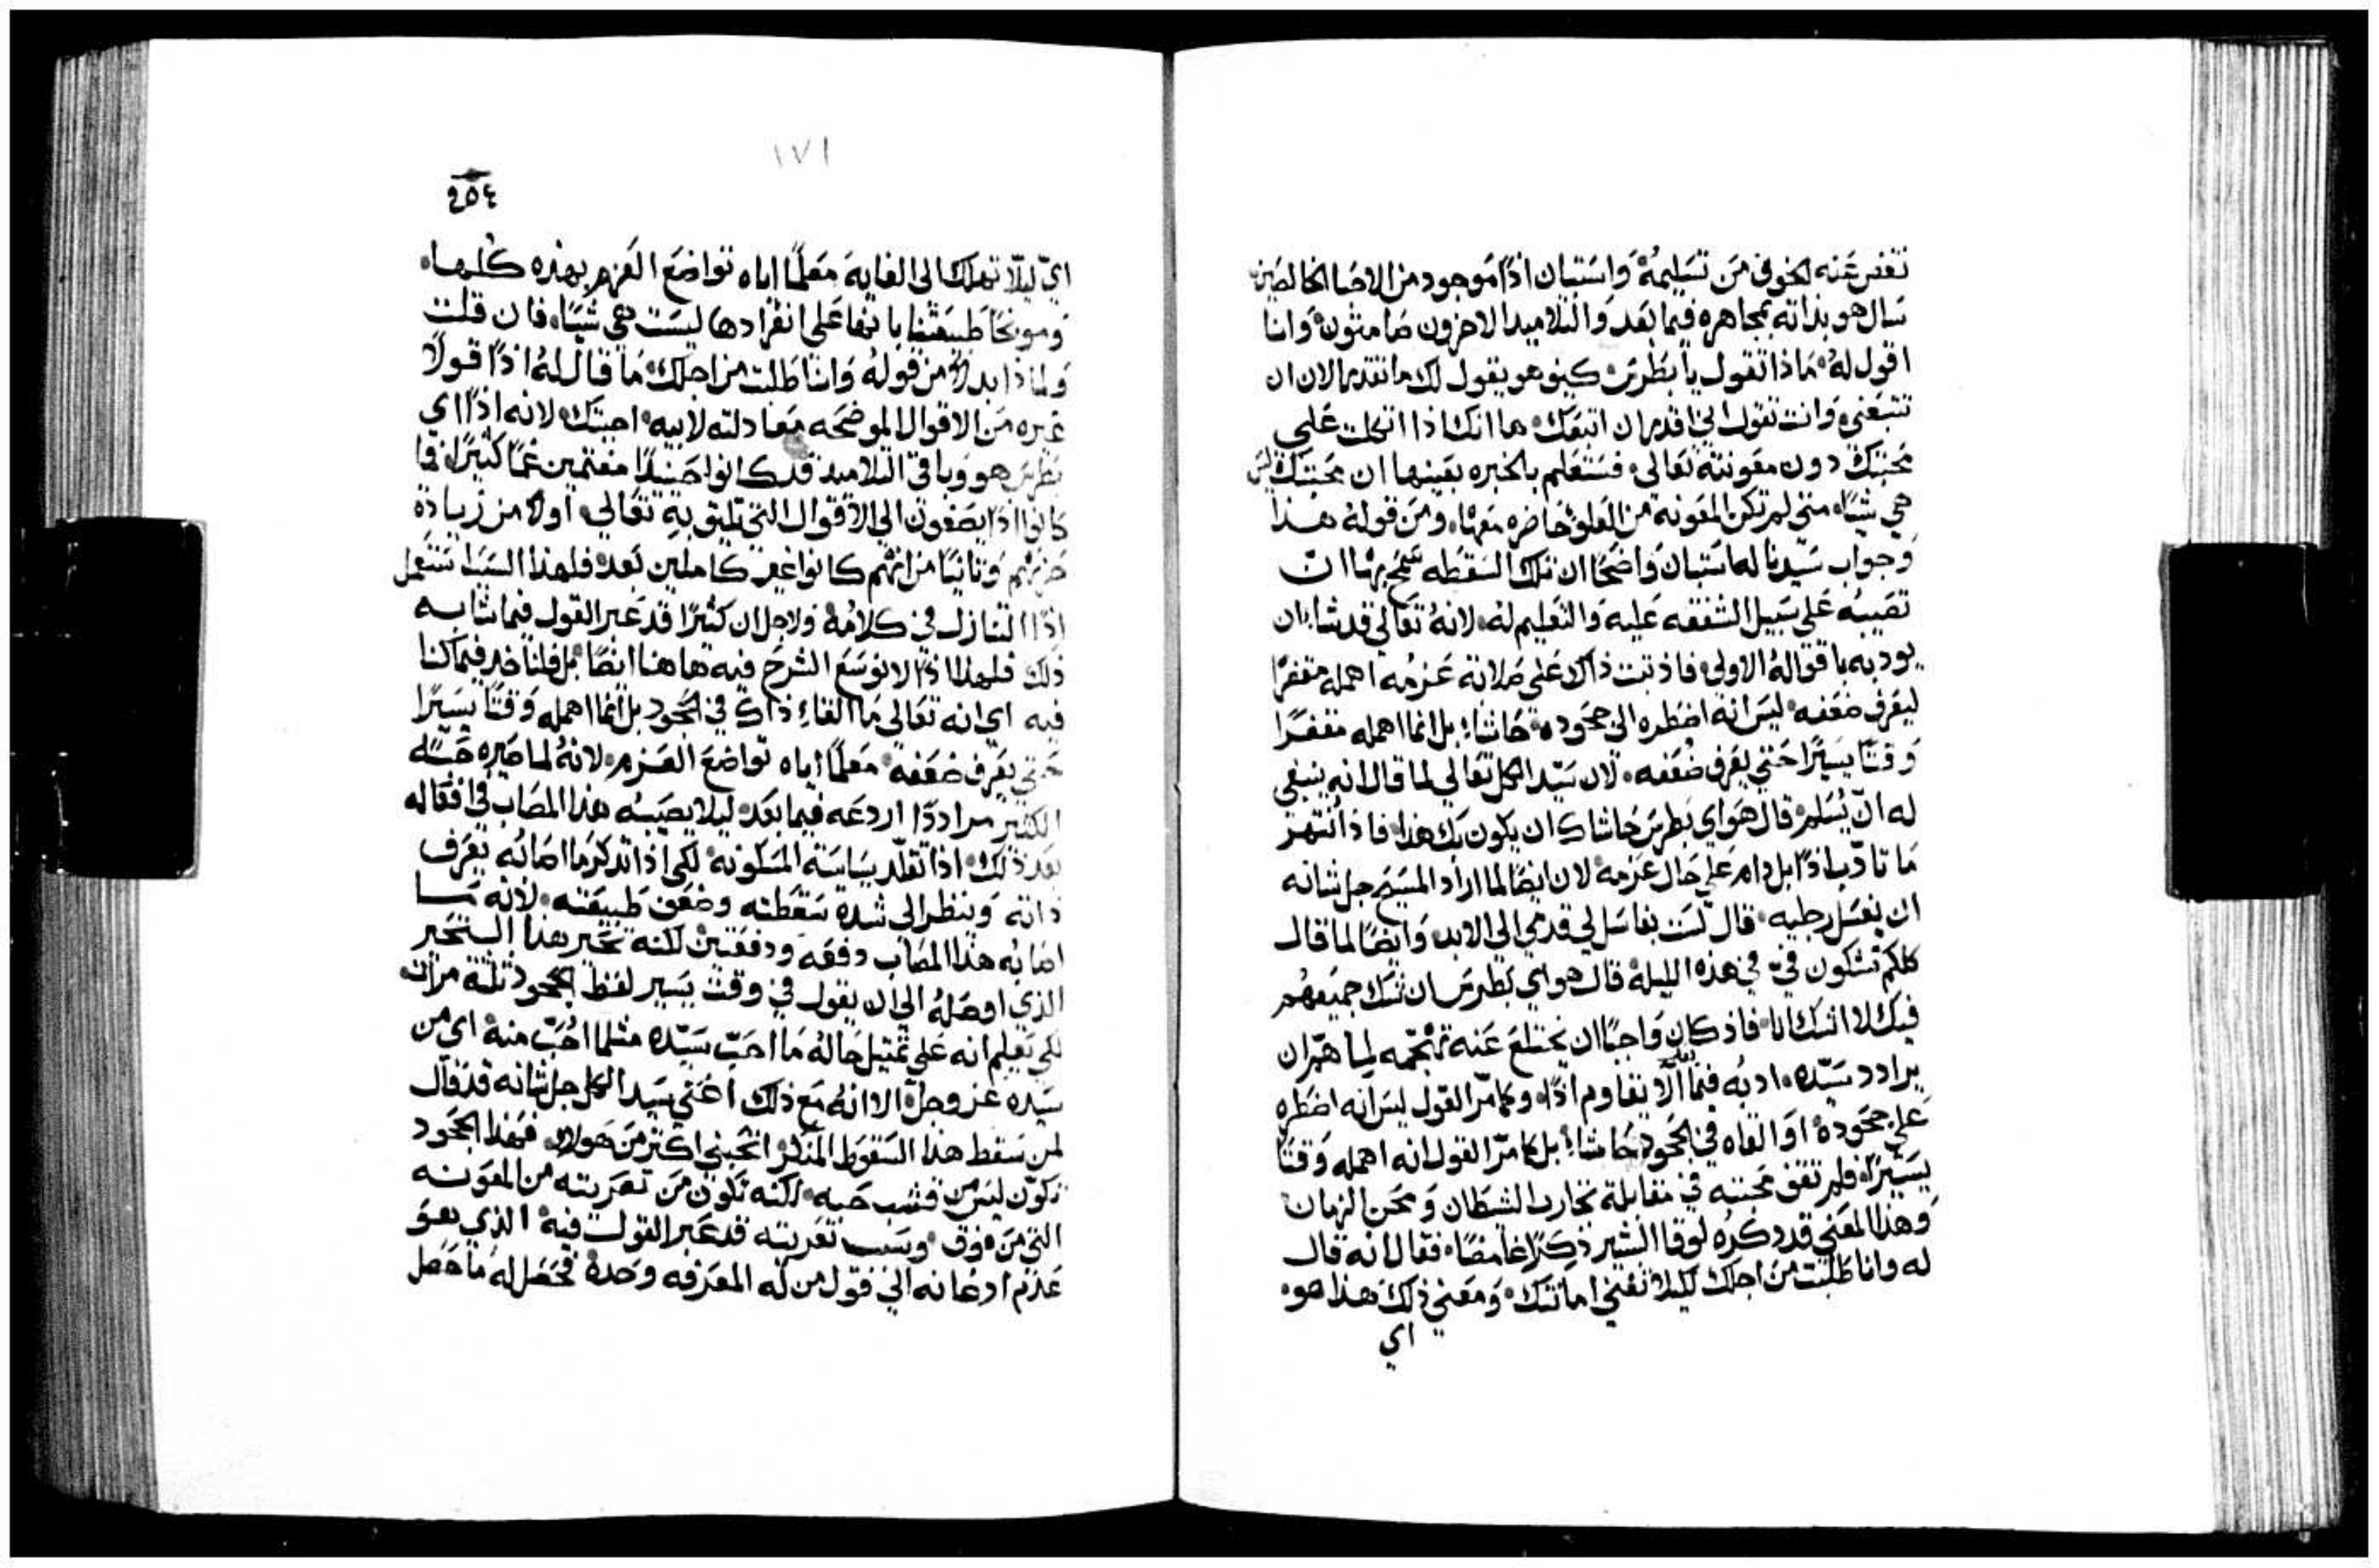 تغنى عنه الخوف من تسليمه واستبان اذًا موجود من الاحبا الخالصين
سال هو بذاته بمجاهره فيما بعد والتلاميد الاخرون صامتون وانا
اقول له ماذا تقول يا بطرس كيغو هو يقول لك ما تقدر الان ان
تتبعني وانت تقول اني اقدر ان اتبعك ها انك اذا اتكلت علي
محبتك دون معونته تعالي فستعلم بالخبره بعينها ان محبتك ليس
هي شيًا متي لم تكن المعونه من العلو حاضره معها ومن قوله هذا
وجواب سيدنا له استبان واضحًا ان تلك السقطه سمح بها ان
تصيبه علي سبيل الشفقه عليه والتعليم له لانه تعالي قد شاء ان
يودبه باقواله الاولي فاذ ثبت ذاك علي صلابة عزمه اهمله مقفرًا
ليعرف ضعفه ليس انه اضطره الي جحوده حاشا بل انما اهمله مقفرًا
وقتًا يسيرًا حتي يعرف ضعفه لان سيد الكل تعالي لما قال انه ينبغي
له ان يُسَلم قال هو اي بطرس حاشاك ان يكون لك هذا فاذ انتهر
ما تادب اذًا بل دام علي حال عزمه لان ايضًا لما اراد المسيح جل شانه
ان يغسل رجليه قال لست بغاسل لي قدمي الي الابد وايضًا لما قال
كلكم تشكون فيّ في هذه الليلة قال هو اي بطرس ان شك جميعهم
فيك لا اشك انا فاذ كان واجبًا ان يختلع عنه تهجمه لما هم ان
يرادد سيده ادبه فيما بعد الّا يقاوم اذًا وكما مرّ القول ليس انه اضطره
علي جحوده او القاه في الجحود حاشا بل كما مرّ القول انه اهمله وقتًا
يسيرًا فلم تقف محبته في مقابلة تجارب الشيطان ومحن الزمان
وهذا المعني قد ذكره لوقا البشير ذكرًا غامضًا فقال انه قال
له وانا طلبت من اجلك لكيلا تفني امانتك ومعني ذلك هذا هو
اي
١٧١
٢٥٤
اي ليلّا تهلك الي الغايه معلمًا اياه تواضع العزم بهذه كلها
وموبخًا طبيعتنا بانها علي انفرادها ليست هي شيًا فان قلت
ولماذا بدلًا من قوله وانا طلبت من اجلك ما قال له اذًا قولًا
غيره من الاقوال الموضحه معادلته لابيه اجبتك لانه اذًا اي
بطرس هو وباقي التلاميد قد كانوا حينيدًا مغتمين غمًا كثيرًا فما
كانوا اذًا يصغون الي الاقوال التي تليق به تعالي اولًا من زيادة
حزنهم وثانيًا من انهم كانوا غير كاملين بعد فلهذا السبب استعمل
اذًا التنازل في كلامه ولاجل ان كثيرًا قد عبر القول فيما شابه
ذلك فلهذا اذًا لا نوسع الشرح فيه هاهنا ايضًا بل فلناخذ فيما كنا
فيه اي انه تعالي ما القاء ذاك في الجحود بل انما اهمله وقتًا يسيرًا
حتي يعرف ضعفه معلمًا اياه تواضع العزم لانه لما صيره حبه له
الكثير مراددًا اردعه فيما بعد ليلا يصيبه هذا المصاب في افعاله
بعد ذلك اذا تقلّد سياسة المسكونه لكي اذا تذكر ما اصابه يعرف
ذاته وينظر الي شدة سقطته وضعف طبيعته لانه ما
اصابه هذا المصاب دفعه ودفعتين لكنه تحير هذا التحير
الذي اوصله الي ان يقول في وقت يسير لفظ الجحود ثلثة مرات
لكي يعلم انه علي تمثيل حاله ما احب سيده مثلما احب منه اي من
سيده عز وجل الا انه مع ذلك اعني سيد الكل جل شانه قد قال
لمن سقط هذا السقوط المنكر اتحبني اكثر من هولاء فهذا الجحود
تكوّن ليس من قشب حبه لكنه تكون من تعريته من المعونه
التي من فوق وسبب تعريته قد عبر القول فيه الذي هو
عدم ادعانه الي قول من له المعرفه وحده فحصل له ما حصل